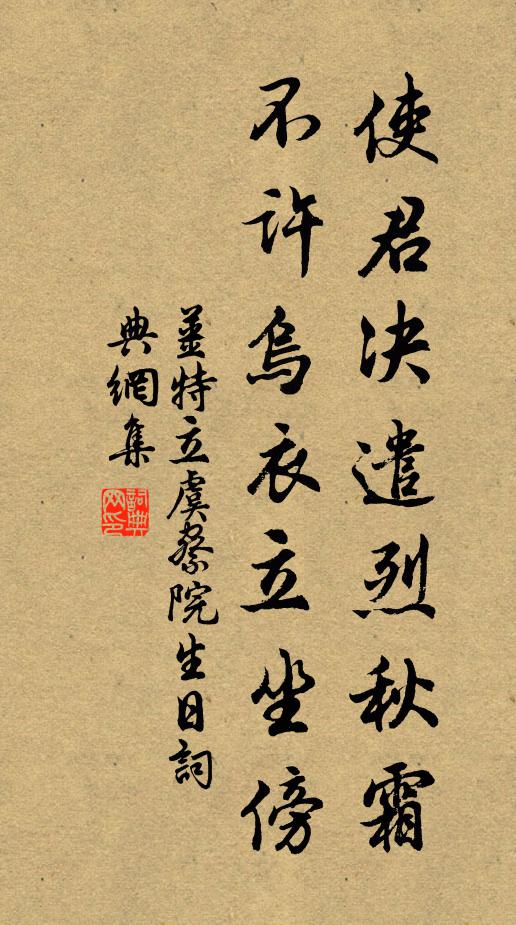 使君决遣烈秋霜
不许烏衣立坐傍
薑特立虞察院生日詞
典網集
詞典网印